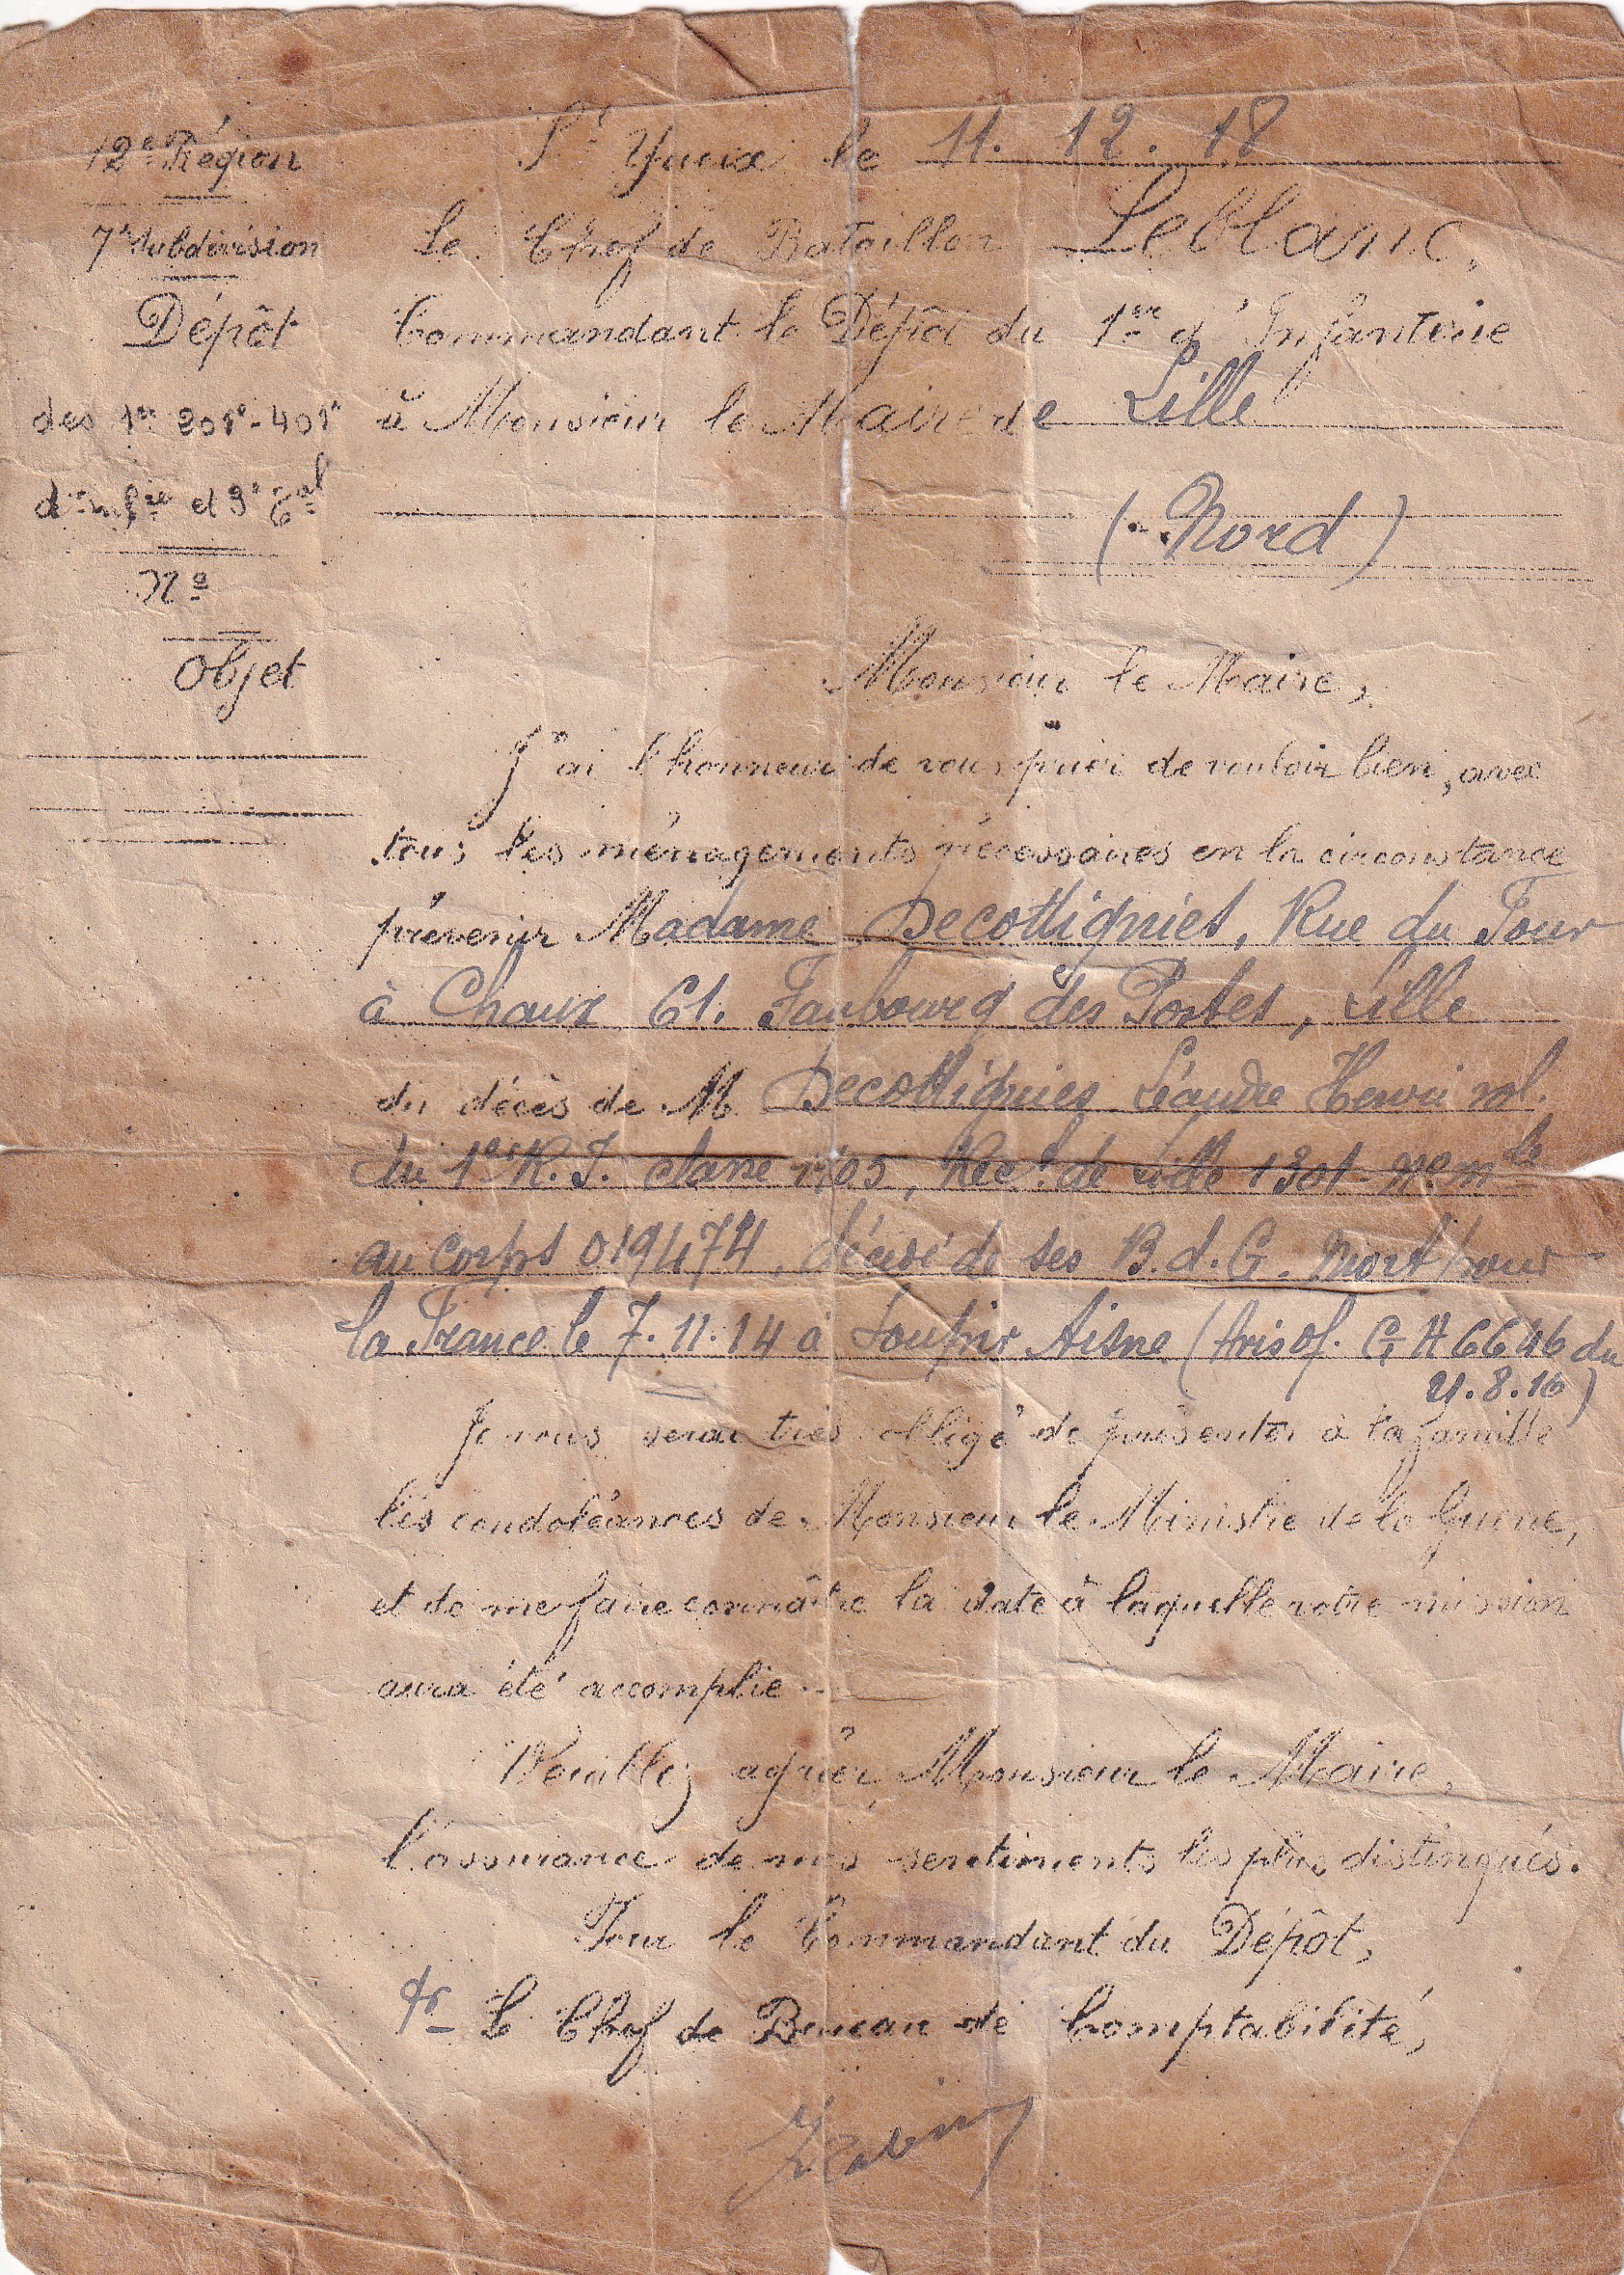 12e Région
St Yrieix le 11. 12. 18
7e Subdivision
Le Chef de Bataillon Leblanc,
Dépôt
Commandant le Dépôt du 1er d'Infanterie
des 1er 201e - 401e
à Monsieur le Maire de Lille
d'Infrie et 3e Tal
(Nord)
No
Objet
Monsieur le Maire,
J'ai l'honneur de vous prier de vouloir bien, avec
tous les ménagements nécessaires en la circonstance
prévenir Madame Decottignies, Rue du Four
à Chaux 61. Faubourg des Postes, Lille
du décès de M Decottignies Léandre Henri sol.
du 1er R.I. classe 1905, Rect de Lille 1301 - No mle
au corps 019474, décédé de ses B.d.G. Mort pour
la France le 7.11.14 à Soupir Aisne (Avis of. GH 6646 du
21.8.16)
Je vous serai très obligé de présenter à la famille
les condoléances de Monsieur le Ministre de la Guerre,
et de me faire connaître la date à laquelle votre mission
aura été accomplie.
Veuillez agréer, Monsieur le Maire,
l'assurance de mes sentiments les plus distingués.
Pour le Commandant du Dépôt,
Le Chef de Bureau de Comptabilité,